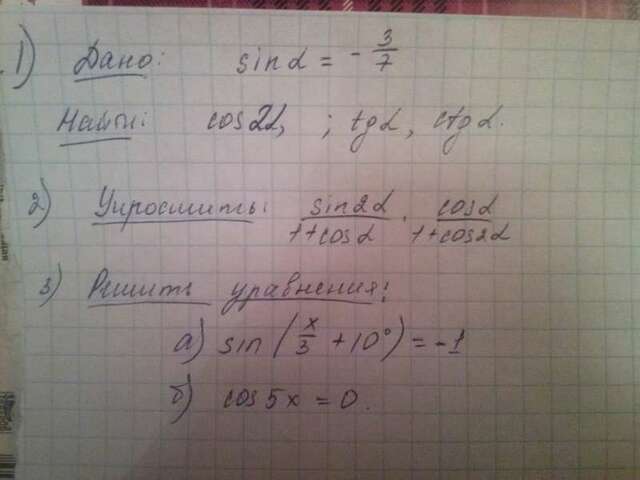 1) Дано: sin α = - 3/7
Найти: cos 2α, ; tg α, ctg α.
2) Упростить: sin 2α / 1 + cos α · cos α / 1 + cos 2α
3) Решить уравнения:
а) sin ( x/3 + 10° ) = -1
б) cos 5x = 0.